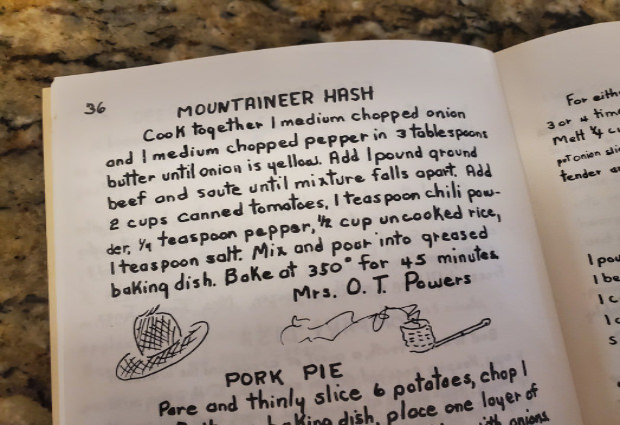 36
MOUNTAINEER HASH
Cook together 1 medium chopped onion
and 1 medium chopped pepper in 3 tablespoons
butter until onion is yellow. Add 1 pound ground
beef and saute until mixture falls apart. Add
2 cups canned tomatoes, 1 teaspoon chili pow-
der, 1/4 teaspoon pepper, 1/2 cup uncooked rice,
1 teaspoon salt. Mix and pour into greased
baking dish. Bake at 350° for 45 minutes
Mrs. O. T. Powers
PORK PIE
Pare and thinly slice 6 potatoes, chop 1
baking dish, place one layer of
with onions
For
3 or 4
Melt 1/4
onion
tender